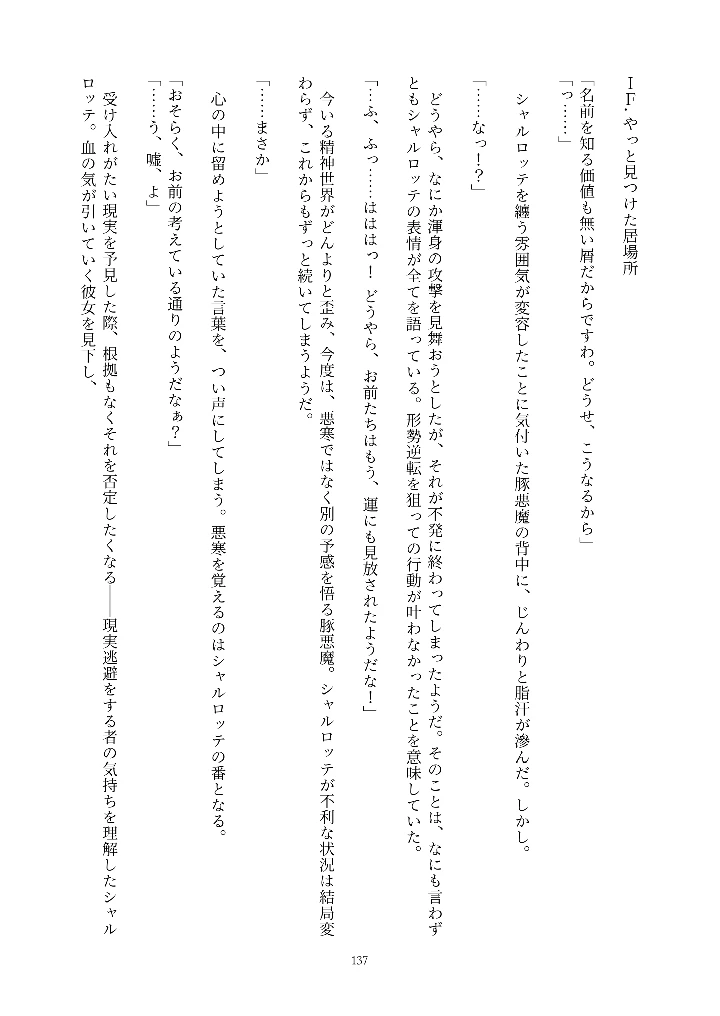 ＩＦ．やっと見つけた居場所
「名前を知る価値も無い屑だからですわ。どうせ、こうなるから」
「っ……」
　シャルロッテを纏う雰囲気が変容したことに気付いた豚悪魔の背中に、じんわりと脂汗が滲んだ。しかし。
「……なっ！？」
　どうやら、なにか渾身の攻撃を見舞おうとしたが、それが不発に終わってしまったようだ。そのことは、なにも言わず
ともシャルロッテの表情が全てを語っている。形勢逆転を狙っての行動が叶わなかったことを意味していた。
「…ふ、ふっ……はははっ！　どうやら、お前たちはもう、運にも見放されたようだな！」
　今いる精神世界がどんよりと歪み、今度は、悪寒ではなく別の予感を悟る豚悪魔。シャルロッテが不利な状況は結局変
わらず、これからもずっと続いてしまうようだ。
「……まさか」
　心の中に留めようとしていた言葉を、つい声にしてしまう。悪寒を覚えるのはシャルロッテの番となる。
「おそらく、お前の考えている通りのようだなぁ？」
「……う、嘘、よ」
　受け入れがたい現実を予見した際、根拠もなくそれを否定したくなる――現実逃避をする者の気持ちを理解したシャル
ロッテ。血の気が引いていく彼女を見下し、
137